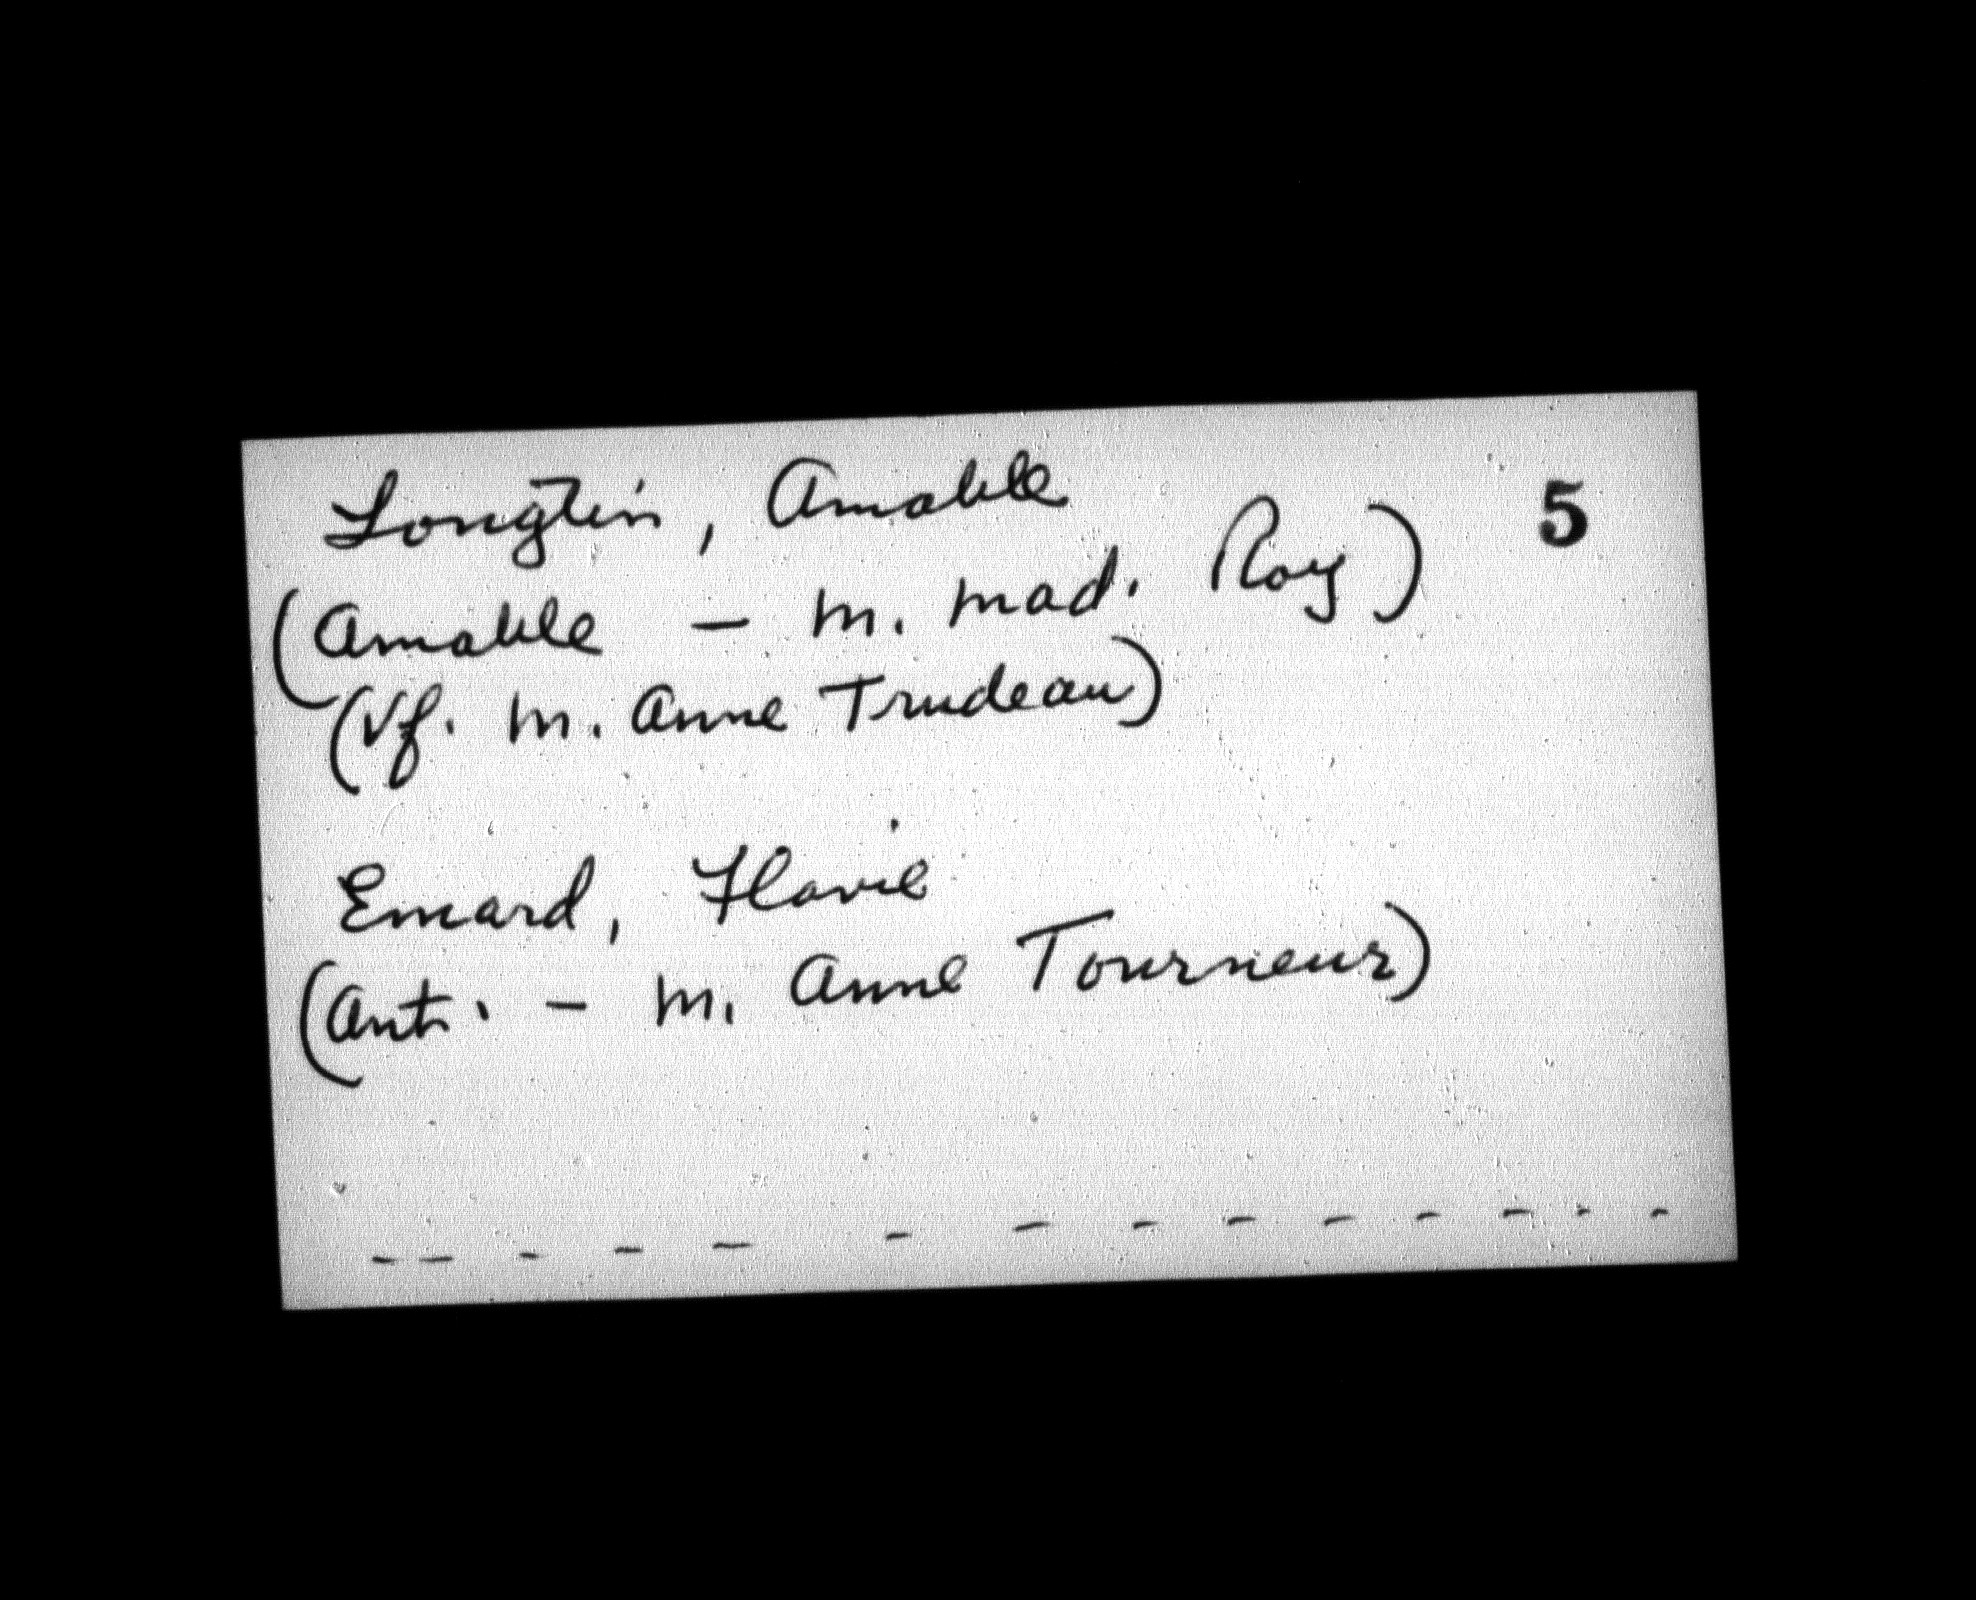 Longtin, Amable
5
(Amable — m. mad. Roy)
(Vf. m. Anne Trudeau)
Emard, Flavie
(Ant. — m. Anne Tourneur)